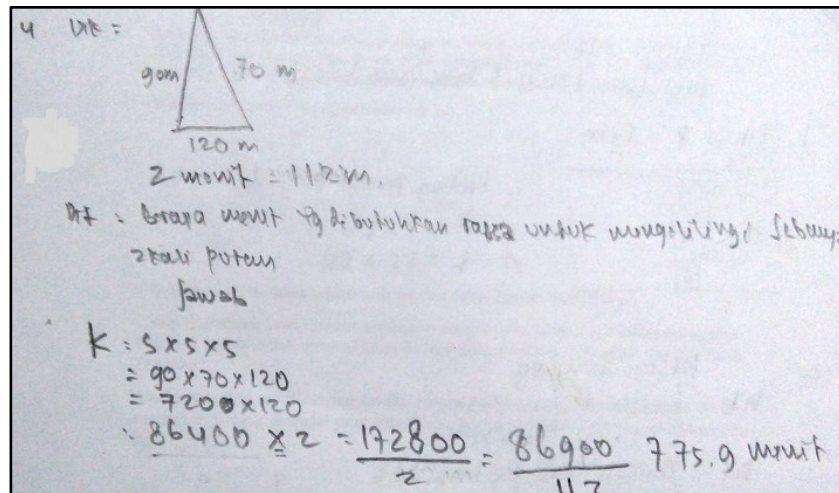 4 Dik =
90m 70 m
120 m
2 menit = 112 m
Dit : Brapa menit yg dibutuhkan untuk mengelilingi sebanya
2 kali putan
Jawab
K = S x S x S
= 90 x 70 x 120
= 7200 x 120
: 86400 x 2 = 172800 / 2 = 86900 / 112 775.9 menit